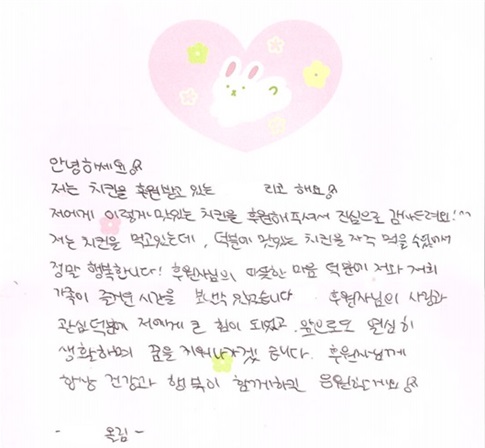 안녕하세요
저는 치킨을 후원받고 있는 리고 해요
저에게 이렇게 맛있는 치킨을 후원해주셔서 진심으로 감사드려요!^^
저는 치킨을 먹고있는데, 덕분에 맛있는 치킨을 자주 먹을 수있어서
정말 행복합니다! 후원자님의 따뜻한 마음 덕분에 저와 저희
가족이 즐거운 시간을 보낼수 있었습니다 후원자님의 사랑과
관심 덕분에 저에게 큰 힘이 되었고, 앞으로도 열심히
생활하며 꿈을 키워나가겠습니다. 후원자님께
항상 건강과 행복이 함께하길 응원할게요
- 올림 -